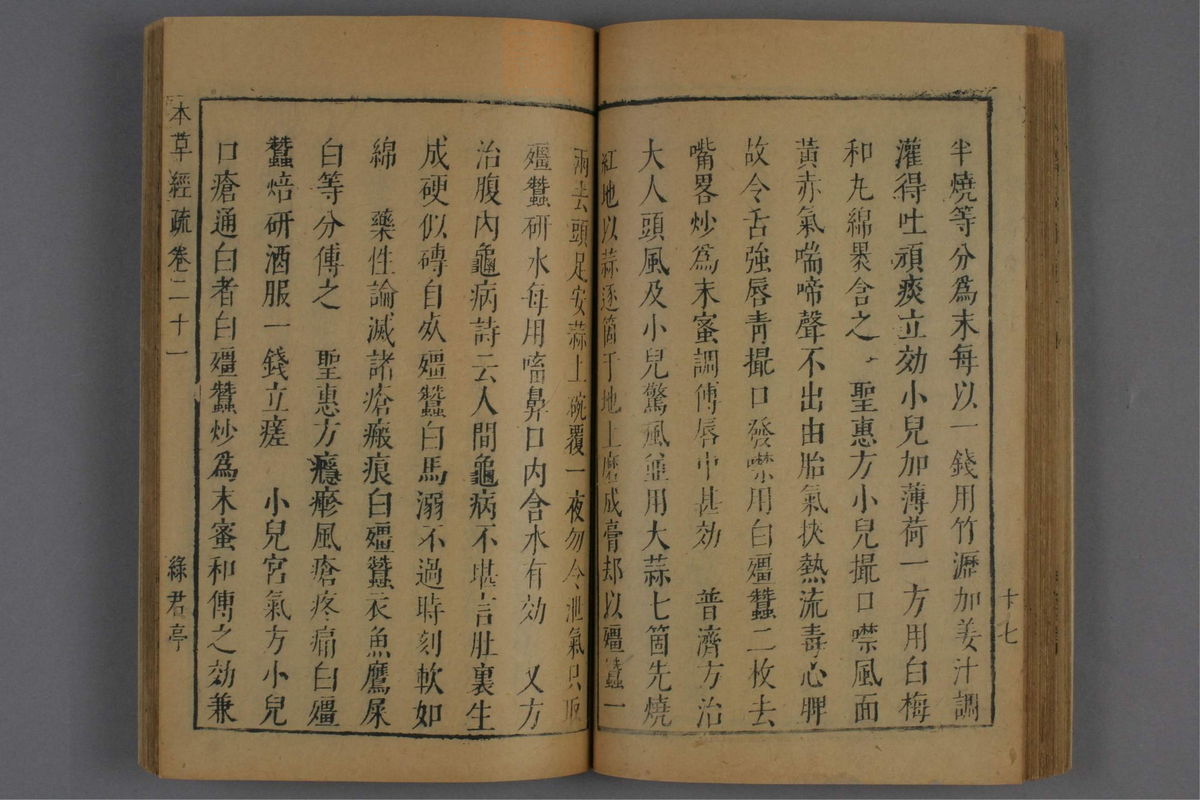 半燒等分爲末每以一錢用竹瀝加姜汁調
灌得吐頑痰立効小兒加薄荷一方用白梅
和丸綿褁含之 聖惠方小兒撮口噤風面
黃赤氣喘啼聲不出由胎氣挾熱流毒心脾
故令舌強唇青撮口發噤用白殭蠶二枚去
嘴畧炒爲末蜜調傅唇中甚効 普濟方治
大人頭風及小兒驚風並用大蒜七箇先燒
紅地以蒜逐箇于地上磨成膏却以殭蠶一
兩去頭足安蒜上碗覆一夜勿令泄氣只取
殭蠶研水每用㗜鼻口内含水有効 又方
治腹内龜病詩云人間龜病不堪言肚裏生
成硬似磚自死殭蠶白馬溺不過時刻軟如
綿 藥性論滅諸瘡瘢痕白殭蠶衣魚鷹屎
白等分傅之 聖惠方癮疹風瘡疼痛白殭
蠶焙研酒服一錢立瘥 小兒宮氣方小兒
口瘡通白者白殭蠶炒爲末蜜和傅之効兼
本草經疏 卷二十一 綠君亭
十七